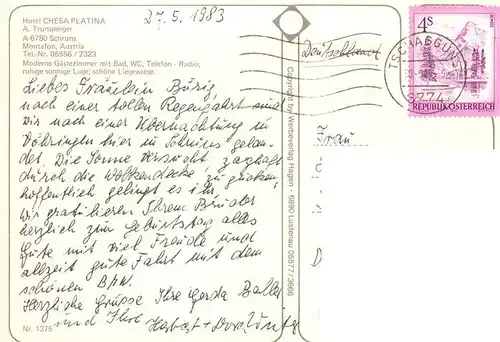 Hotel CHESA PLATINA
A. Trunsperger
A-6780 Schruns
Montafon, Austria
Tel.-Nr. 05556 / 2323
Moderne Gästezimmer mit Bad, WC, Telefon - Radio;
ruhige sonnige Lage; schöne Liegewiese.
27.5.1983
Liebes Fräulein
nach einer tollen Regenfahrt sind
wir nach einer Übernachtung in
Döhringen hier in Schruns gelan-
det. Die Sonne versucht zaghaft
durch die Wolkendecke zu gucken,
hoffentlich gelingt es ihr.
Wir gratulieren Ihrem Bruder
herzlich zum Geburtstag alles
Gute mit viel Freude und
allzeit gute Fahrt mit dem
schönen BMW.
Herzliche Grüsse Ihre Gerda
und Ihre
Nr. 1375
Copyright by Werbeverlag Hagen - 6890 Lustenau 05577 / 3666
Deutschland
Frau
D
4S
TSCHAGGUNS
REPUBLIK ÖSTERREICH